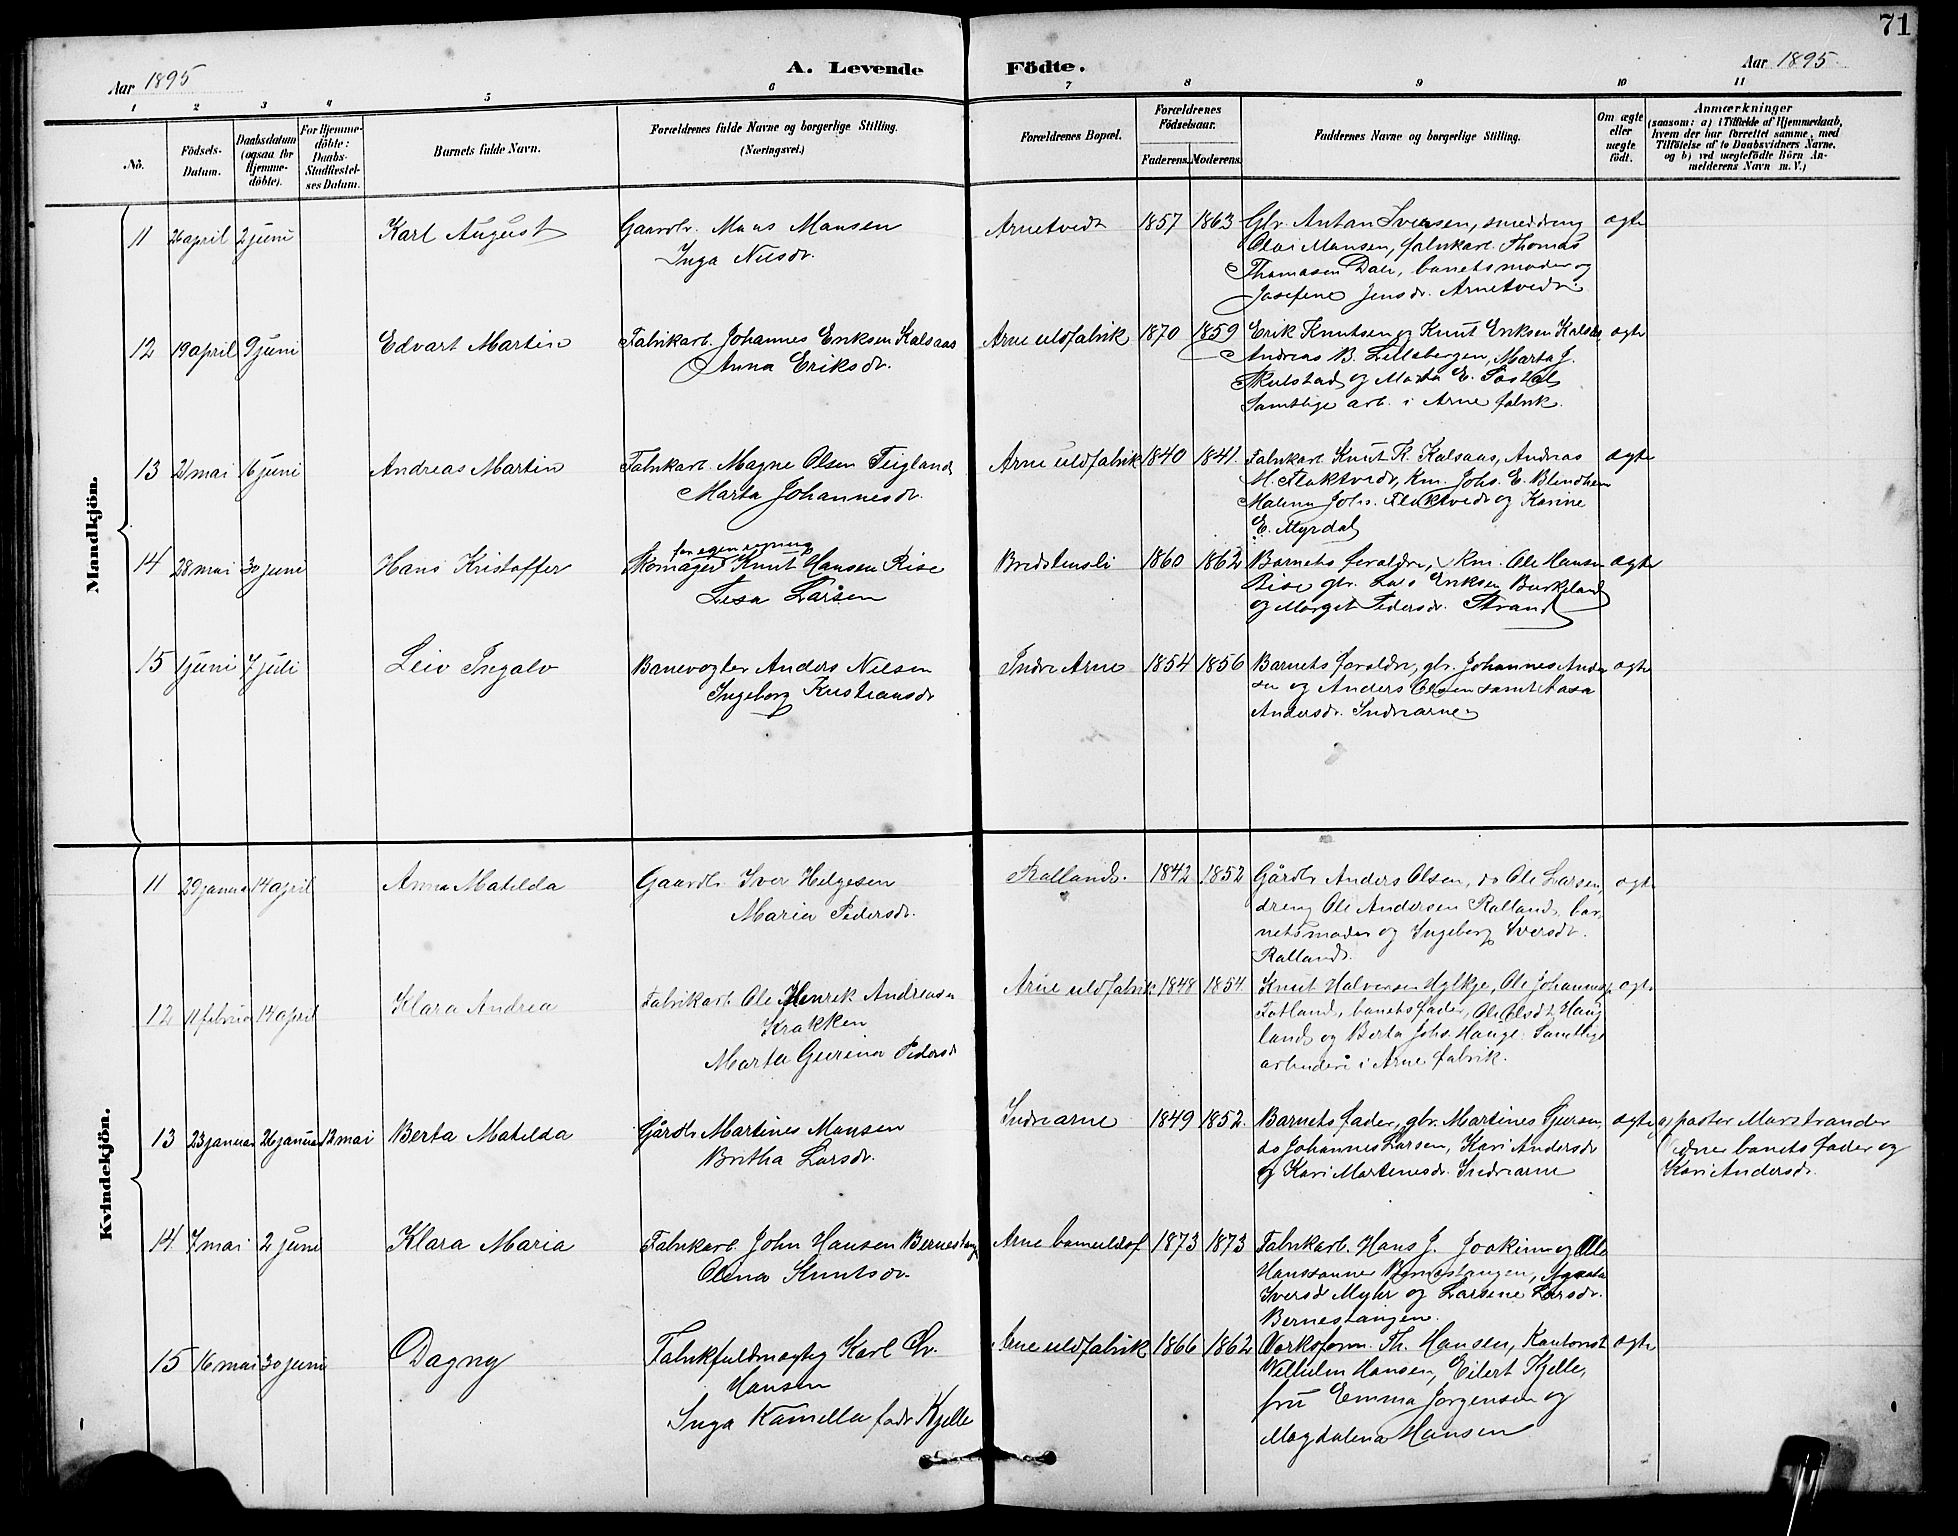 71
Aar 1895
A. Levende Födte.
Aar 1895
1 2 3 4 5 6 7 8 9 10 11
No.
Födsels-
Datum.
Daabsdatum
(ogsaa for
Hjemme-
döbte).
For Hjemme-
döbte:
Daabs-
Stadfæstel-
ses Datum.
Barnets fulde Navn.
Forældrenes fulde Navne og borgerlige Stilling.
(Næringsvei.)
Forældrenes Bopæl.
Forældrenes
Födselsaar.
Faderens. Moderens.
Faddernes Navne og borgerlige Stilling.
Om ægte
eller
uægte
födt.
Anmærkninger
(saasom: a) i Tilfælde af Hjemmedaab,
hvem der har forrettet samme, med
Tilföielse af to Daabsvidners Navne,
og b) ved uægtefödte Börn An-
melderens Navn m. V.)
Mandkjön.
11 26 april 2 juni Karl August
Gaardbr. Mons Monsen
Inga Nilsdr.
Arnetvedt 1857 1863
Gbr. Anton Iversen, smeddreng
Olai Monsen, fabrikarb. Thomas
Thomasen Dale, barnets moder og
Josefine Jensdr. Arnetvedt.
ægte
12 19 april 9 juni Edvart Martin
Fabrikarb. Johannes Eriksen Kalsaas
Anna Eriksdr.
Arne uldfabrik 1870 1859
Erik Knutsen og Knut Eriksen Kalsaas
Andreas B. Lillebergen, Marta J.
Skulstad og Marta E.
Samtlige arb. i Arne fabrik.
ægte
13 21 mai 16 juni Andreas Martin
Fabrikarb. Magne Olsen Teigland
Marta Johannesdr.
Arne uldfabrik 1840 1841
Fabrikarb. Knut K. Kalsaas, Andreas
M. Flaktvedt, Km. Johs. E. Blindheim
Malena Johs. Flaktvedt og Karine
E. Myrdal
ægte
14 28 mai 30 juni Hans Kristoffer
for egen regning
Skomager Knut Hansen Rise
Lesa Larsen
Bredstensli 1860 1862
Barnets foraldre, km. Ole Hansen
Rise gbr. Lars Eriksen Burkeland
og Marget Pedersdr. Strand
ægte
15 1 juni 7 juli Leiv Ingalv
Banevogter Anders Nilsen
Ingeborg Kristiansdr
Indre Arne 1854 1856
Barnets foraldre, gbr. Johannes Ander
sen og Anders Olsen samt Aasa
Andersdr. Indrearne
ægte
Kvindekjön.
11 29 januar 14 april Anna Matilda
Gaardbr. Iver Helgesen
Maria Pedersdr.
Ralland. 1842 1852
Gårdbr Anders Olsen, do Ole Larsen,
dreng Ole Andersen Ralland, bar-
nets moder og Ingeborg Iversdr.
Ralland.
ægte
12 11 februar 14 april Klara Andrea
Fabrikarb. Ole Henrik Andreasen
Krakken
Marta Gurina Pedersdr
Arne uldfabrik 1848 1854
Knut Halvorsen Hylkje, Ole Johannes
Fotland, barnets fader, Ole Olsdt Haug
land og Berta Johs. Hauge. Samtlige
arbeidere i Arne fabrik.
ægte
13 23 januar 26 januar 12 mai Berta Matilda
Gårdbr Martines Monsen
Britha Larsdr.
Indrearne 1849 1852
Barnets fader, gbr. Martines Sjursen,
do Johannes Larsen, Kari Andersdr
og Kari Martinesdr. Indrearne
ægte
a) pastor Marstrander
barnets fader og
Kari Andersdr.
14 7 mai 2 juni Klara Maria
Fabrikarb. John Hansen Bernestang
Olena Knutsdr.
Arne bomuldsf 1873 1873
Fabrikarb. Hans J. Joakim og Ole
Hanssønner Bernestangen, Agata
Iversd Myhr og Larsine Larsdr.
Bernestangen.
15 16 mai 30 juni Dagny
Fabrikfuldmægtig Karl Chr.
Hansen
Inga Kamella født Kjelle
Arne uldfabrik 1866 1862
Værksform. Th. Hansen, Kontorist
Vilhelm Hansen, Eilert Kjelle,
fru Emma Jørgensen og
Magdalena Hansen
ægte